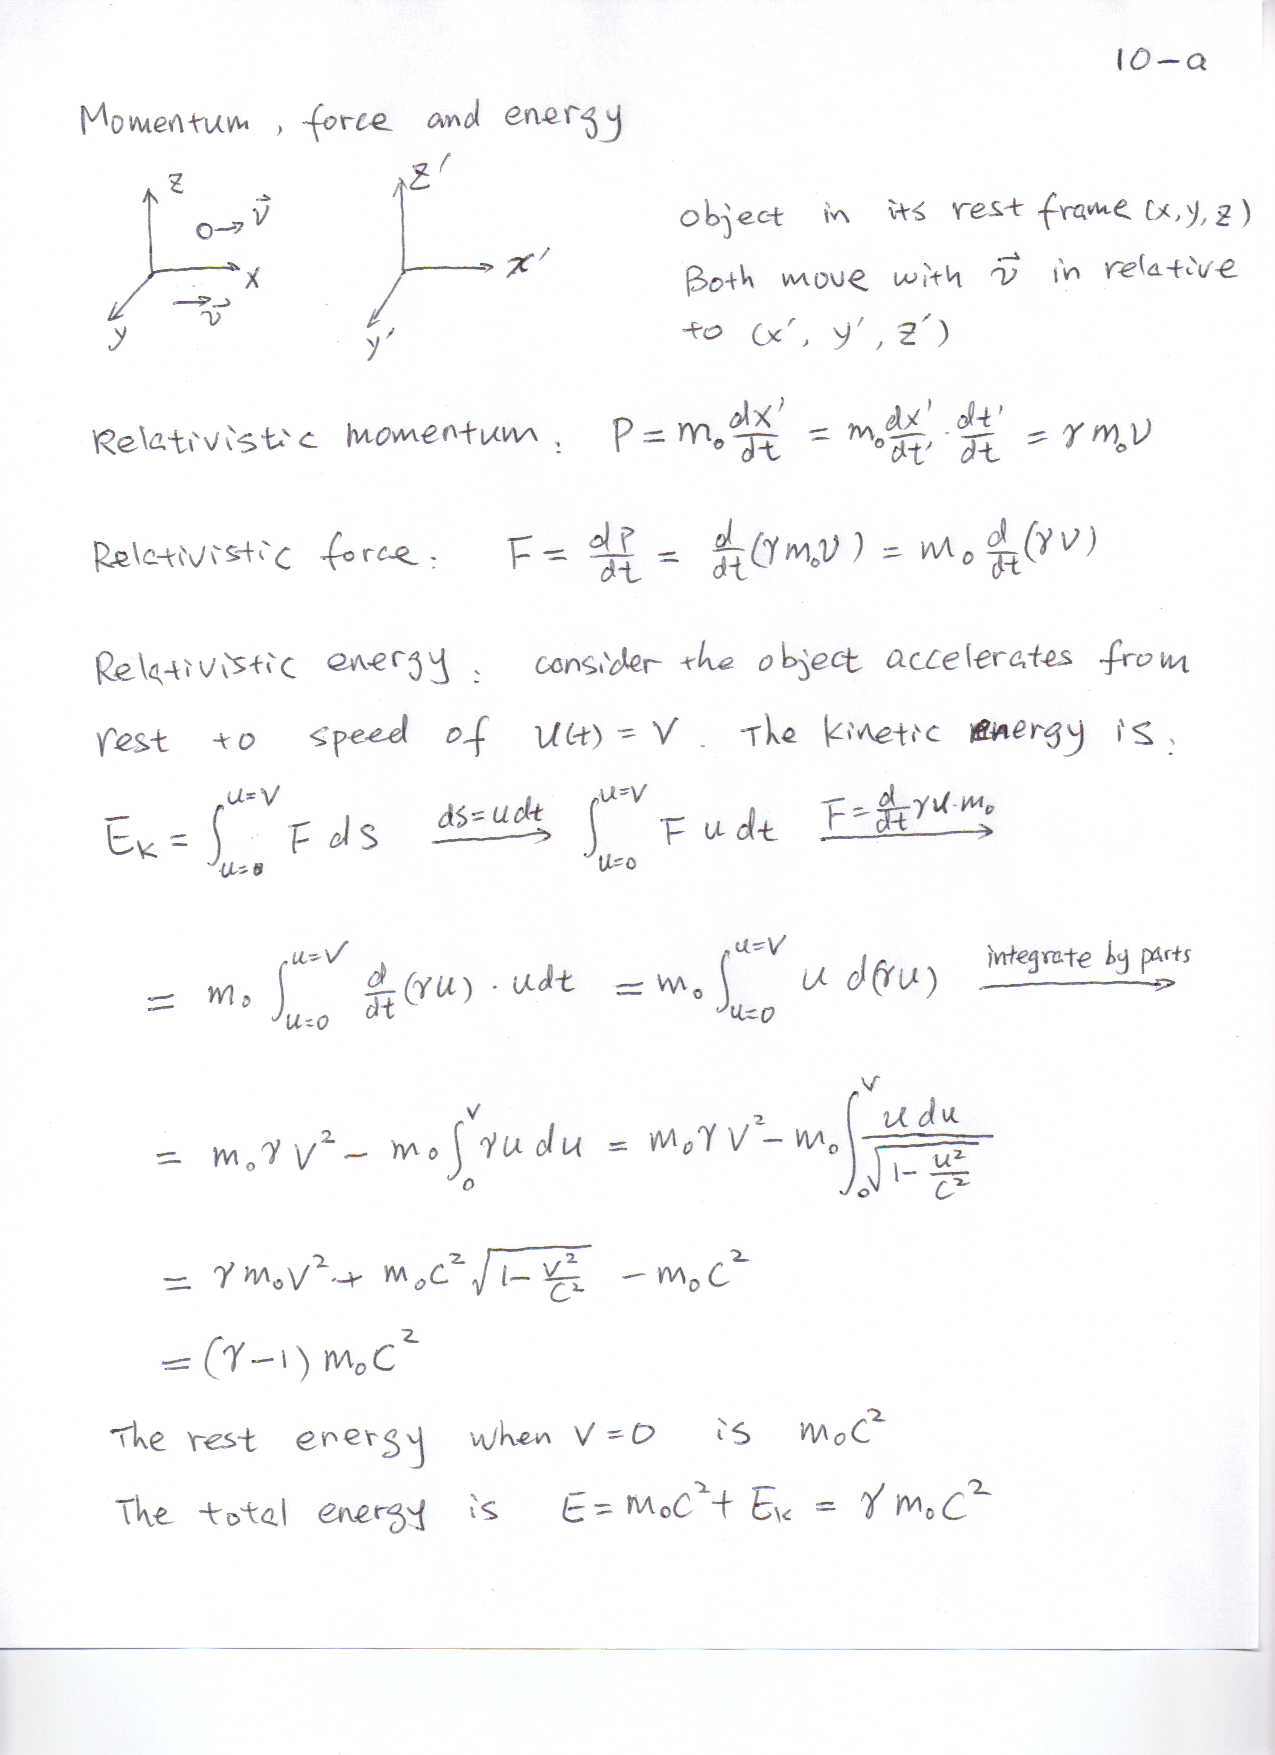 10-a
Momentum, force and energy
z z'
o→ v⃗
x x'
→ v⃗
y y'
object in its rest frame (x,y,z)
Both move with v⃗ in relative
to (x', y', z')
Relativistic momentum: P = m₀ dx'/dt = m₀ dx'/dt' · dt'/dt = γm₀v
Relativistic force: F = dP/dt = d/dt(γm₀v) = m₀ d/dt(γv)
Relativistic energy: consider the object accelerates from
rest to speed of u(t) = v. The kinetic energy is:
E_k = ∫_{u=0}^{u=v} F ds ds=udt → ∫_{u=0}^{u=v} F u dt F = d/dt γu·m₀ →
= m₀ ∫_{u=0}^{u=v} d/dt (γu) · udt = m₀ ∫_{u=0}^{u=v} u d(γu) integrate by parts →
= m₀γv² − m₀ ∫_0^v γu du = m₀γv² − m₀ ∫_0^v u du / √(1 − u²/c²)
= γm₀v² + m₀c² √(1 − v²/c²) − m₀c²
= (γ−1) m₀c²
The rest energy when v=0 is m₀c²
The total energy is E = m₀c² + E_k = γm₀c²